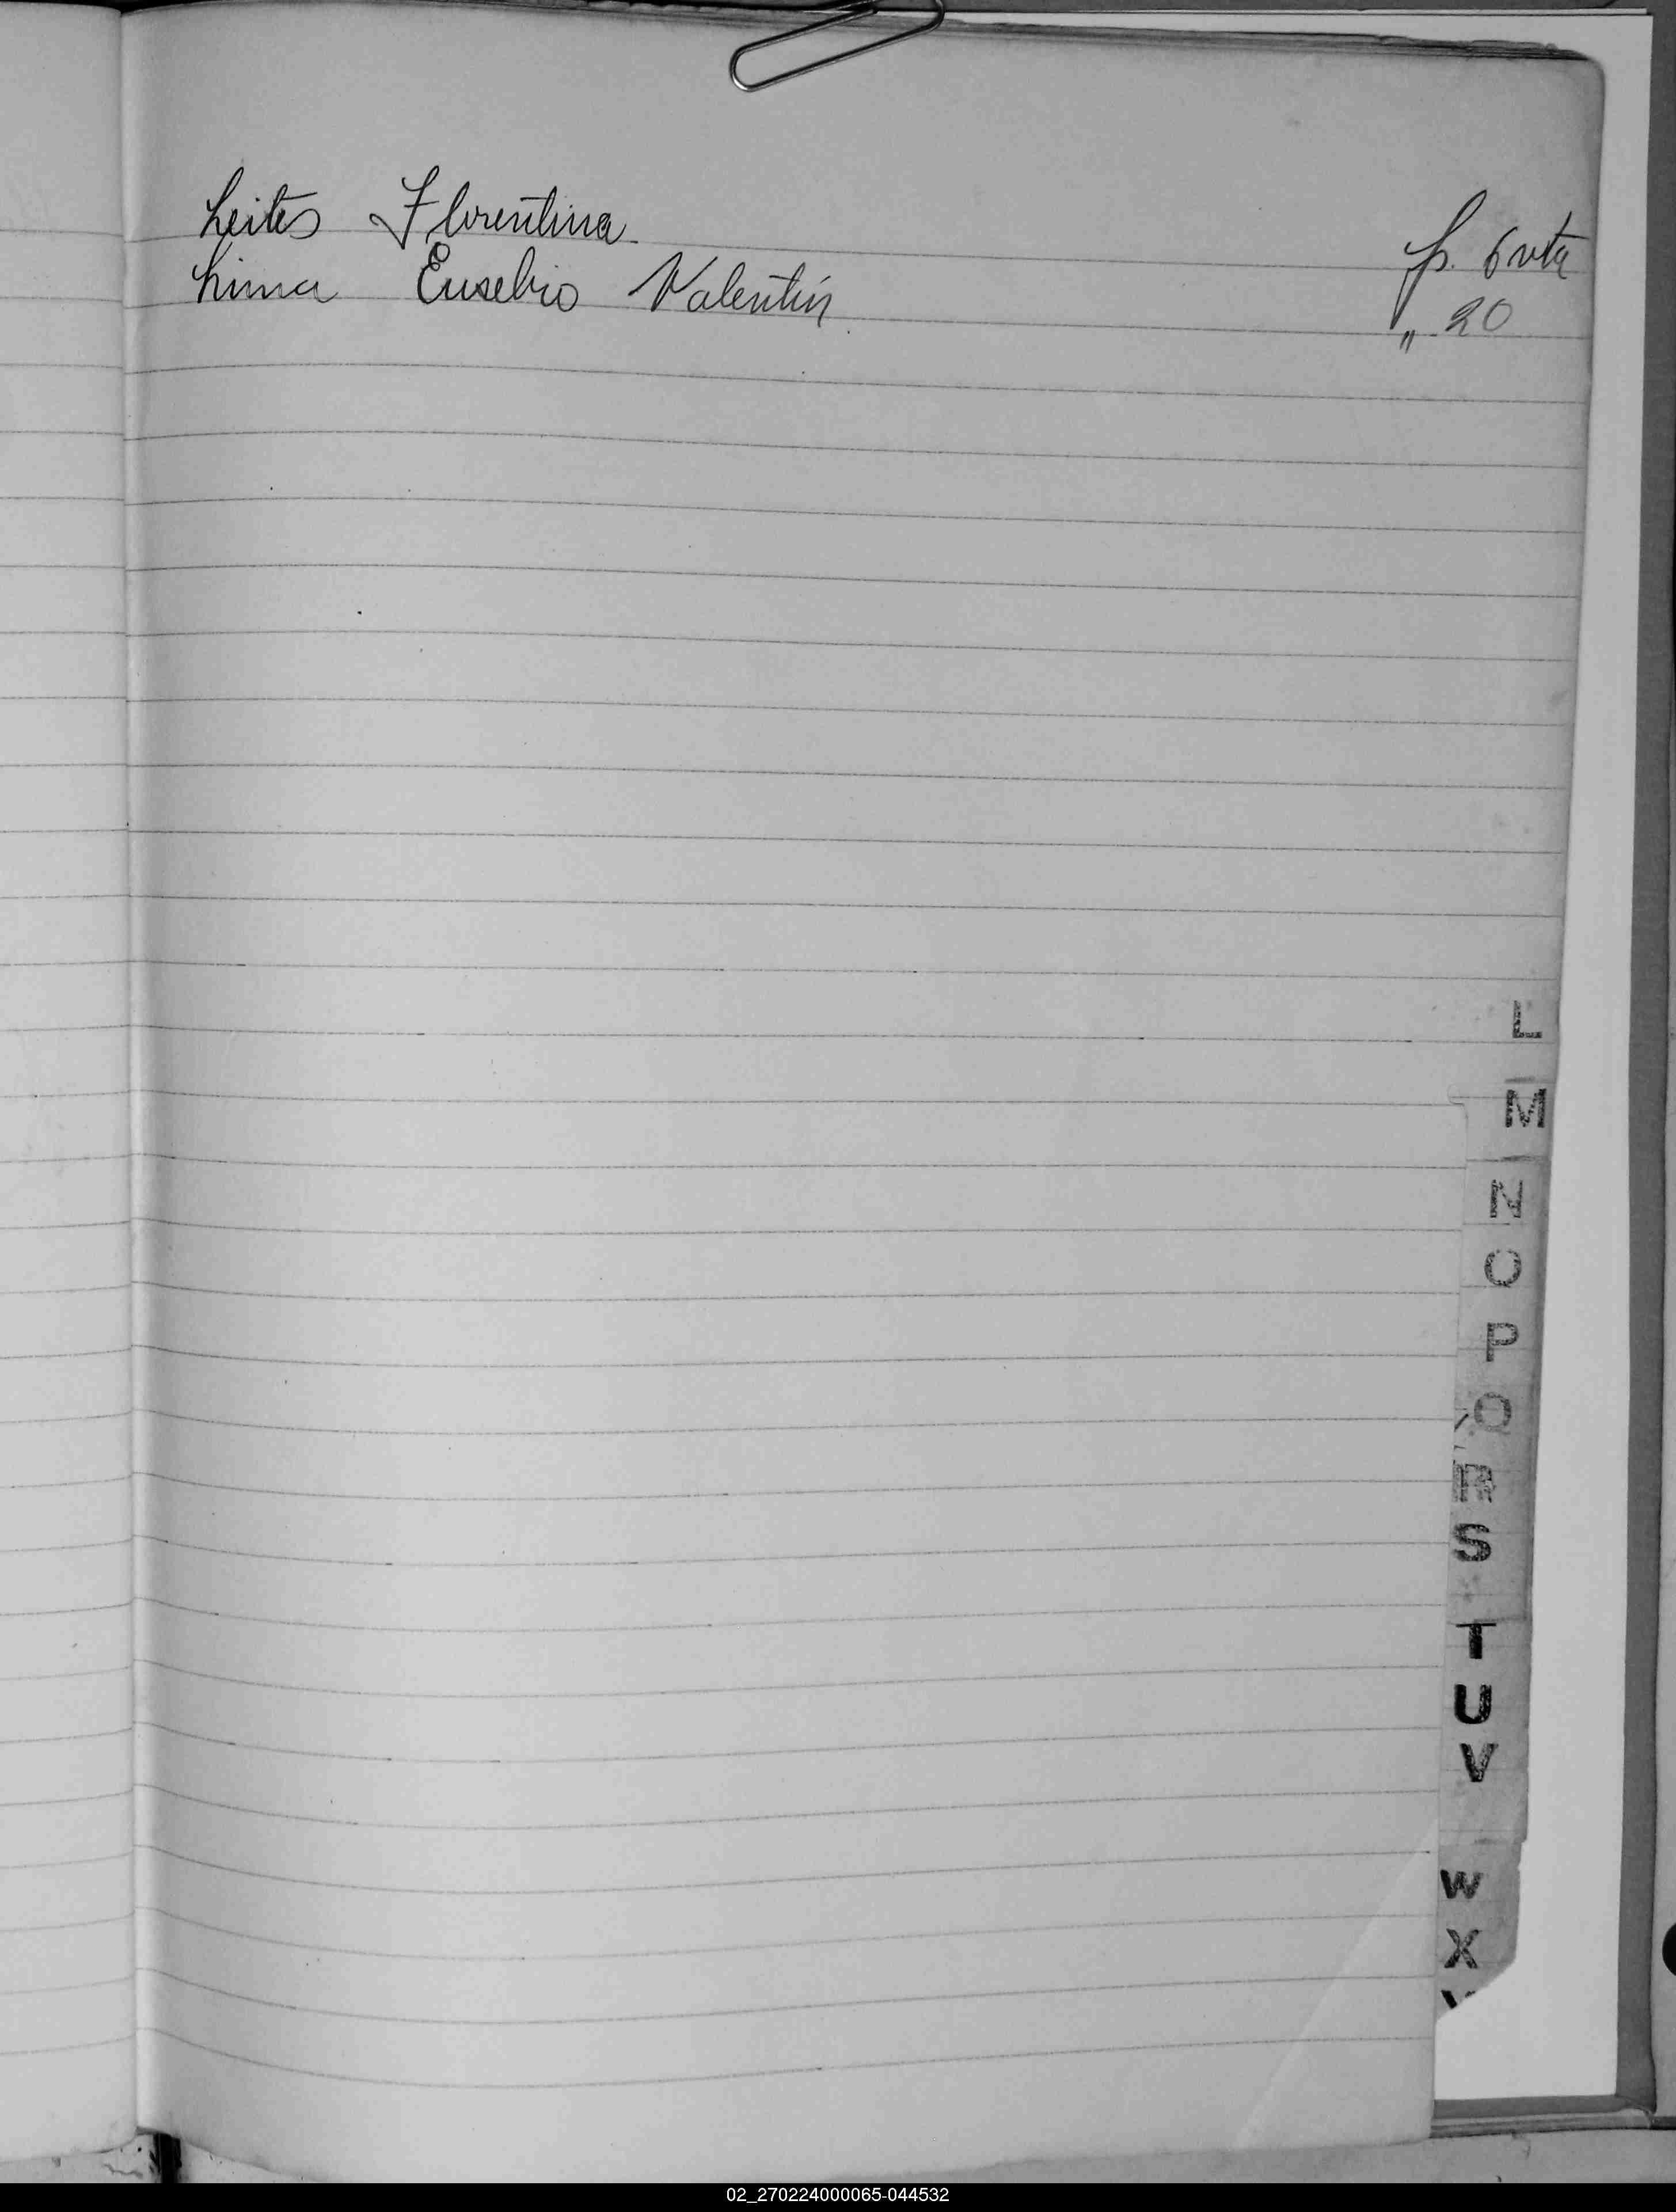 Leites Florentina fs. 6 vta
Lima Eusebio Valentín „ 20
L
M
N
O
P
Q
R
S
T
U
V
W
X
02_270224000065-044532